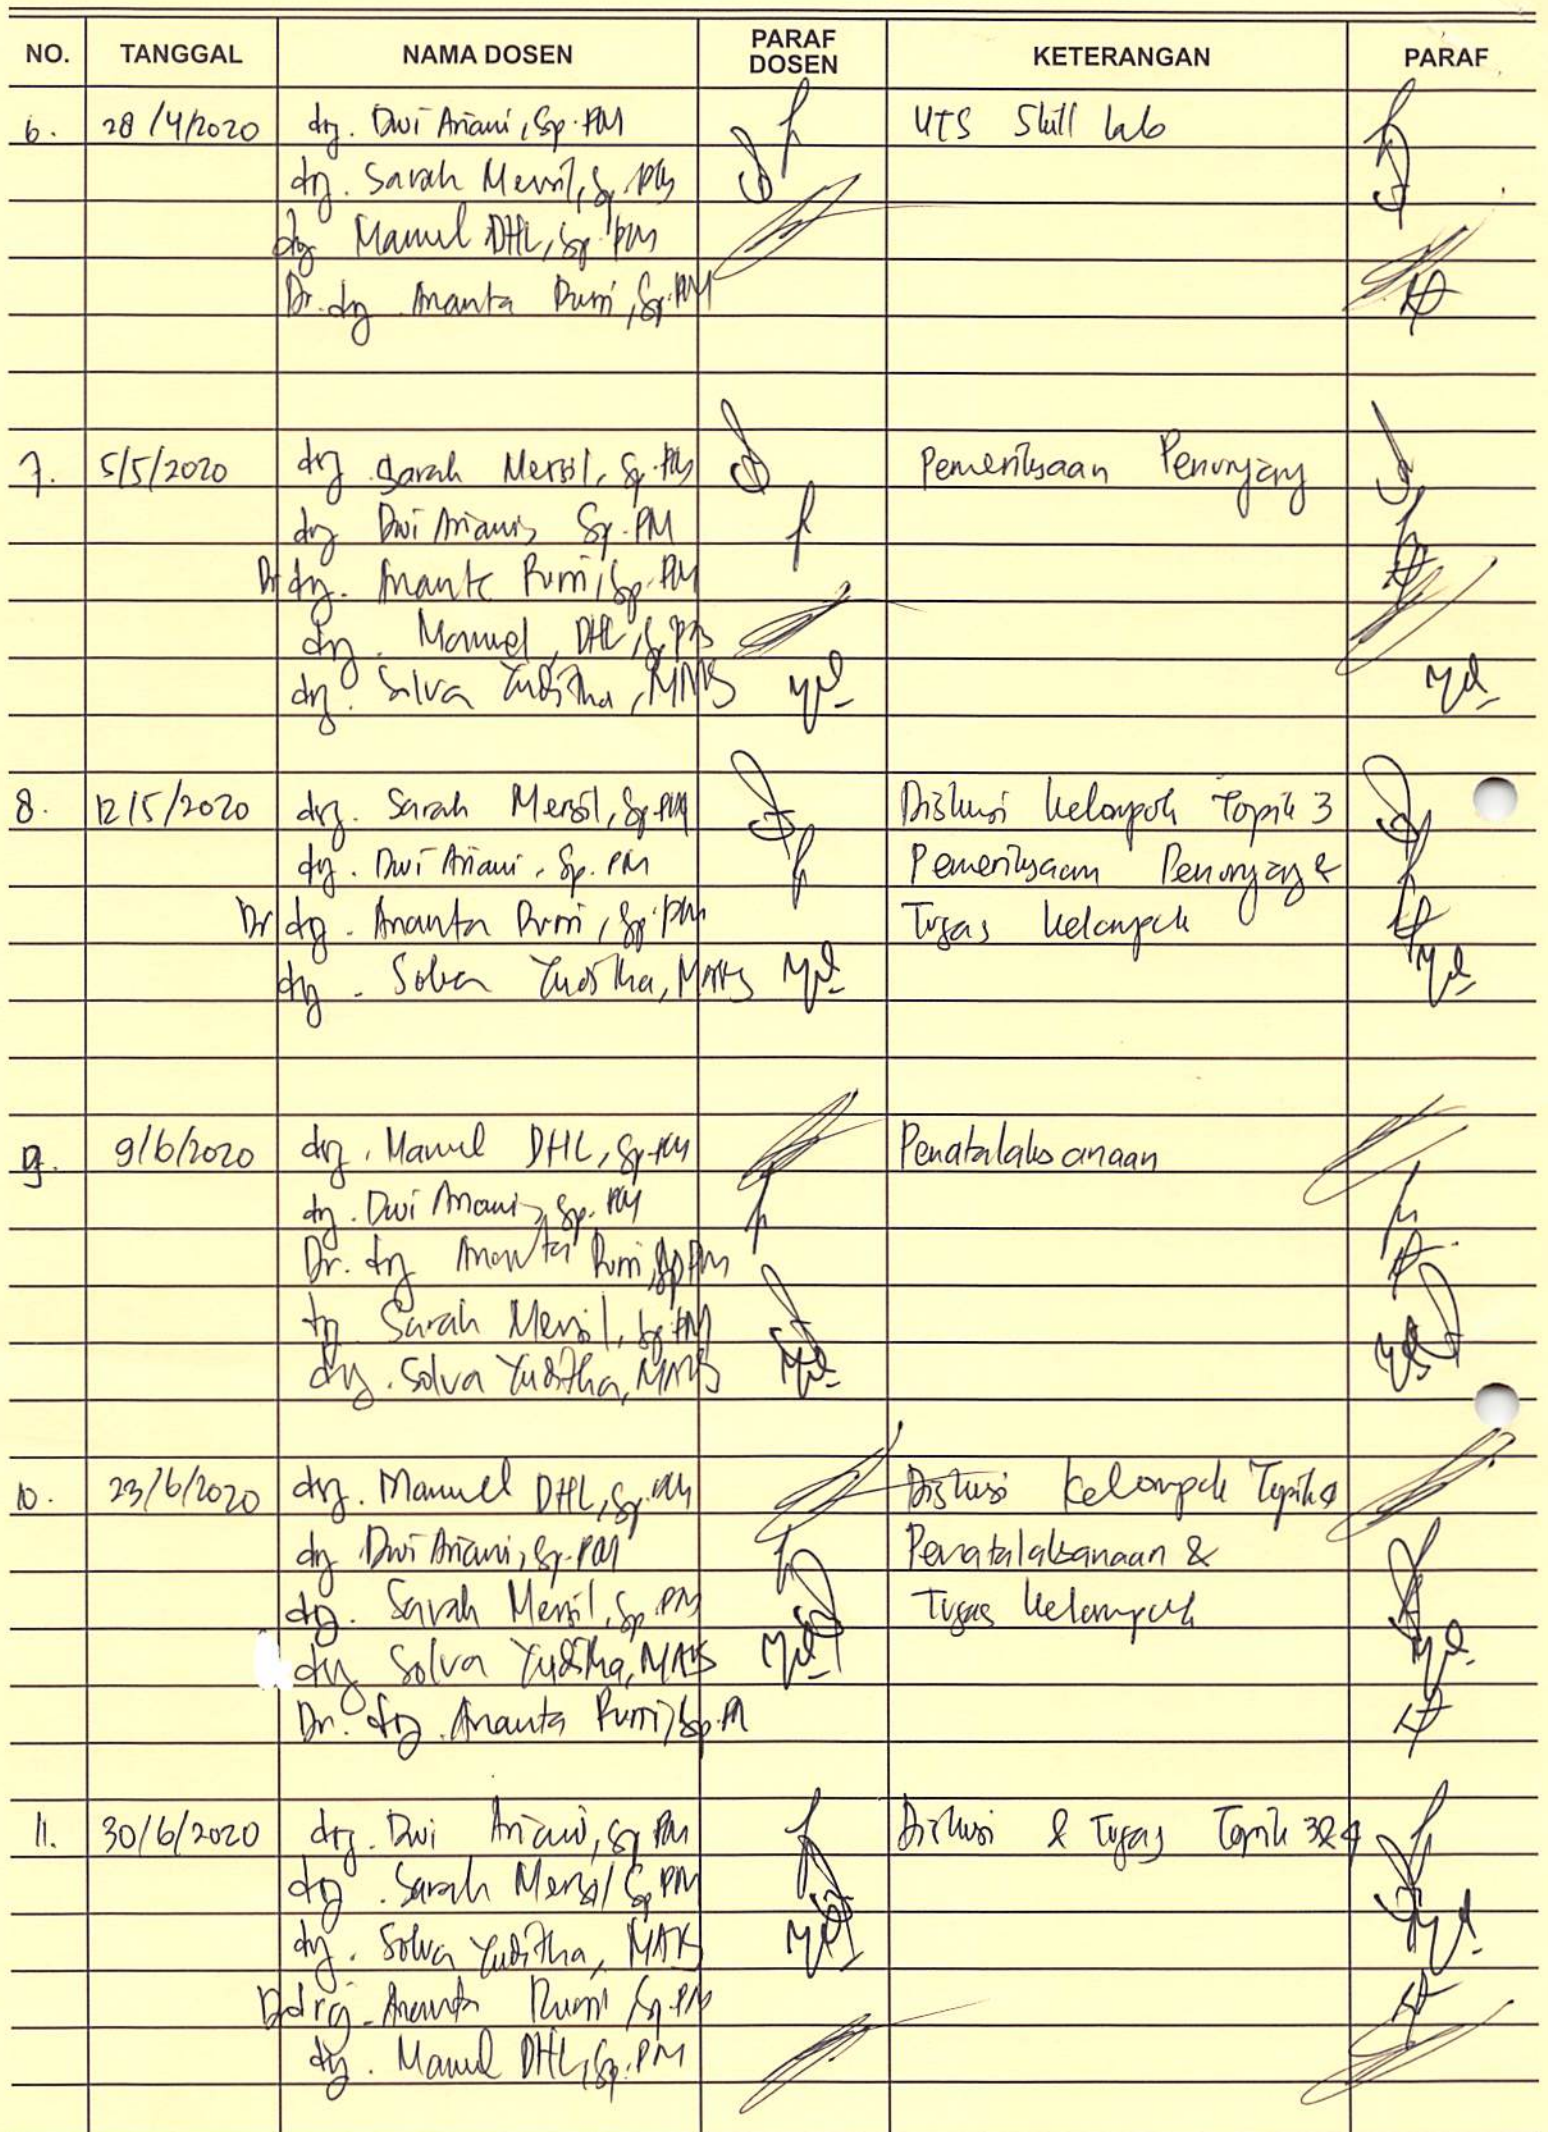 NO. TANGGAL NAMA DOSEN PARAF DOSEN KETERANGAN PARAF
6. 28/4/2020 drg. Dwi Ariani, Sp.PM UTS Skill lab
drg. Sarah Mersil, Sp.PM
drg Manuel DHL, Sp.PM
Dr. drg Ananta Rumi, Sp.PM
7. 5/5/2020 drg Sarah Mersil, Sp.PM Pemeriksaan Penunjang
drg Dwi Ariani, Sp.PM
Dr drg. Ananta Rumi, Sp.PM
drg. Manuel, DHL, Sp.PM
drg. Silva Yuditha, MARS
8. 12/5/2020 drg. Sarah Mersil, Sp.PM Diskusi kelompok Topik 3
drg. Dwi Ariani, Sp.PM Pemeriksaan Penunjang &
Dr drg. Ananta Rumi, Sp.PM Tugas kelompok
drg. Solva Yuditha, MARS
9. 9/6/2020 drg. Manuel DHL, Sp.PM Penatalaksanaan
drg. Dwi Ariani, Sp.PM
Dr. drg Ananta Rumi, Sp.PM
drg Sarah Mersil, Sp.PM
drg. Solva Yuditha, MARS
10. 23/6/2020 drg. Manuel DHL, Sp.PM Diskusi Kelompok Topik 4
drg Dwi Ariani, Sp.PM Penatalaksanaan &
drg. Sarah Mersil, Sp.PM Tugas kelompok
drg Solva Yuditha, MARS
Dr. drg. Ananta Rumi, Sp.PM
11. 30/6/2020 drg. Dwi Ariani, Sp.PM Diskusi & Tugas Topik 3&4
drg. Sarah Mersil Sp.PM
drg. Solva Yuditha, MARS
drg. Ananta Rumi Sp.PM
drg. Manuel DHL, Sp.PM